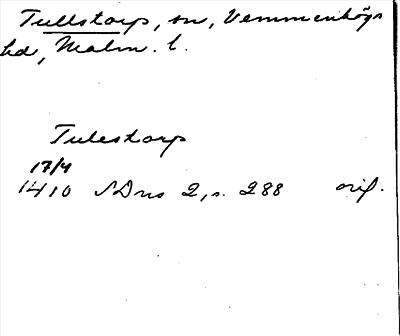 Tullstorp, sn, Vemmenhögs
hd, Malm. l.
Tulestorp
17/4
1410 SDns 2, s. 288 orig.